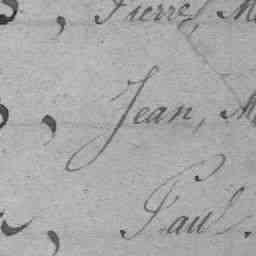 , Pierre, M
, Jean, M
, Paul.